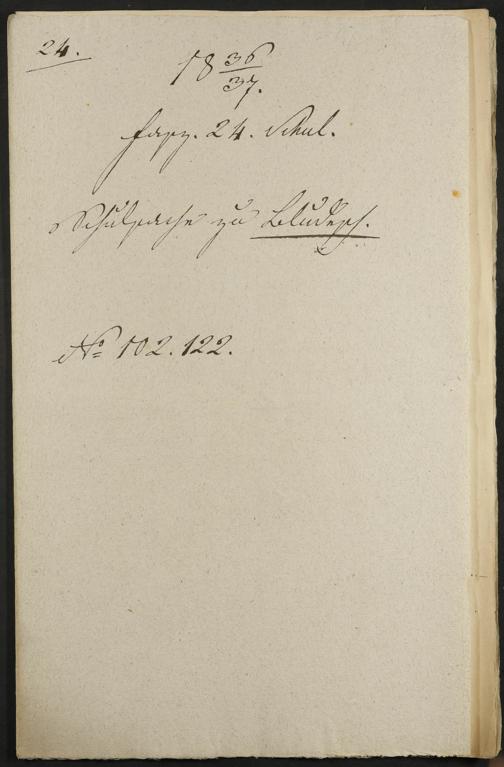 24.
18 36/37.
Fasz. 24. Schul.
Schulsache zu Bludesch.
No 102. 122.